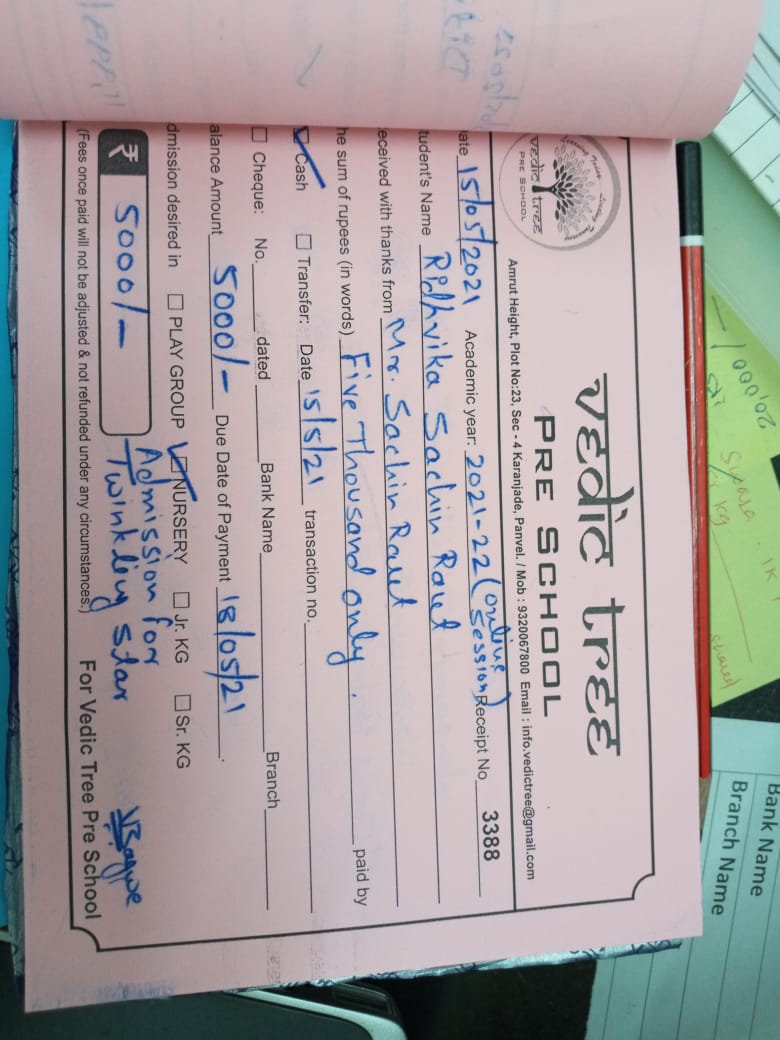 vedic tree
PRE SCHOOL
Learning Today... Tomorrow
vedic tree
PRE SCHOOL
Amrut Height, Plot No:23, Sec - 4 Karanjade, Panvel. / Mob : 9320067800 Email : info.vedictree@gmail.com
ate 15/05/2021 Academic year: 2021-22 (online session) Receipt No 3388
tudent's Name Ridhvika Sachin Raut
eceived with thanks from Mr. Sachin Raut
he sum of rupees (in words) Five Thousand only. paid by
Cash Transfer: Date 15/5/21 transaction no.
Cheque: No. dated Bank Name Branch
alance Amount 5000/- Due Date of Payment 18/05/21.
dmission desired in PLAY GROUP NURSERY Jr. KG Sr. KG
₹ 5000/- Admission for
Twinkling Star
(Fees once paid will not be adjusted & not refunded under any circumstances.) For Vedic Tree Pre School
20,000/-
shared
Bank Name
Branch Name